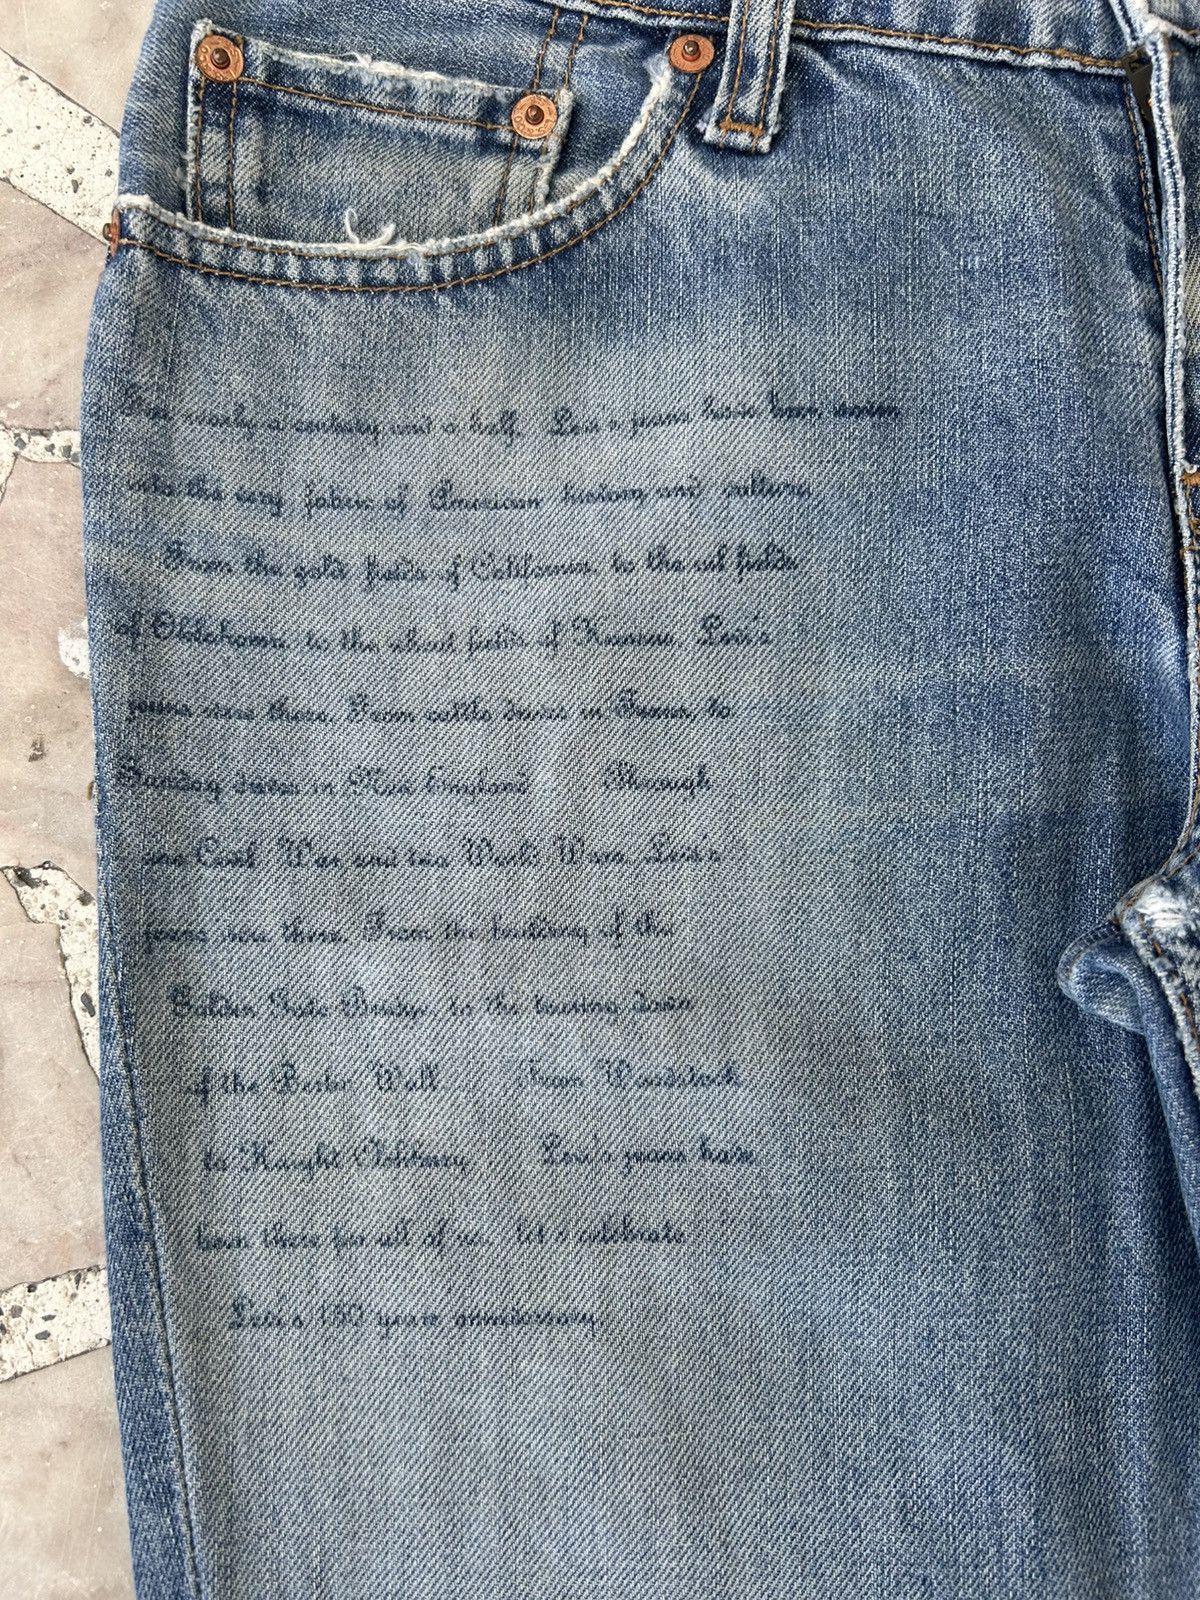 For nearly a century and a half. Levi's jeans have been woven
into the very fabric of American history and culture.
From the gold fields of California, to the oil fields
of Oklahoma, to the wheat fields of Kansas, Levi's
jeans were there. From cattle drives in Texas, to
Sunday drives in New England Through
one Civil War and two World Wars, Levi's
jeans were there. From the building of the
Golden Gate Bridge, to the tearing down
of the Berlin Wall. From Woodstock
to Knight Levi's jeans have
been there for all of us. let's celebrate
Levi's 150 years anniversary.